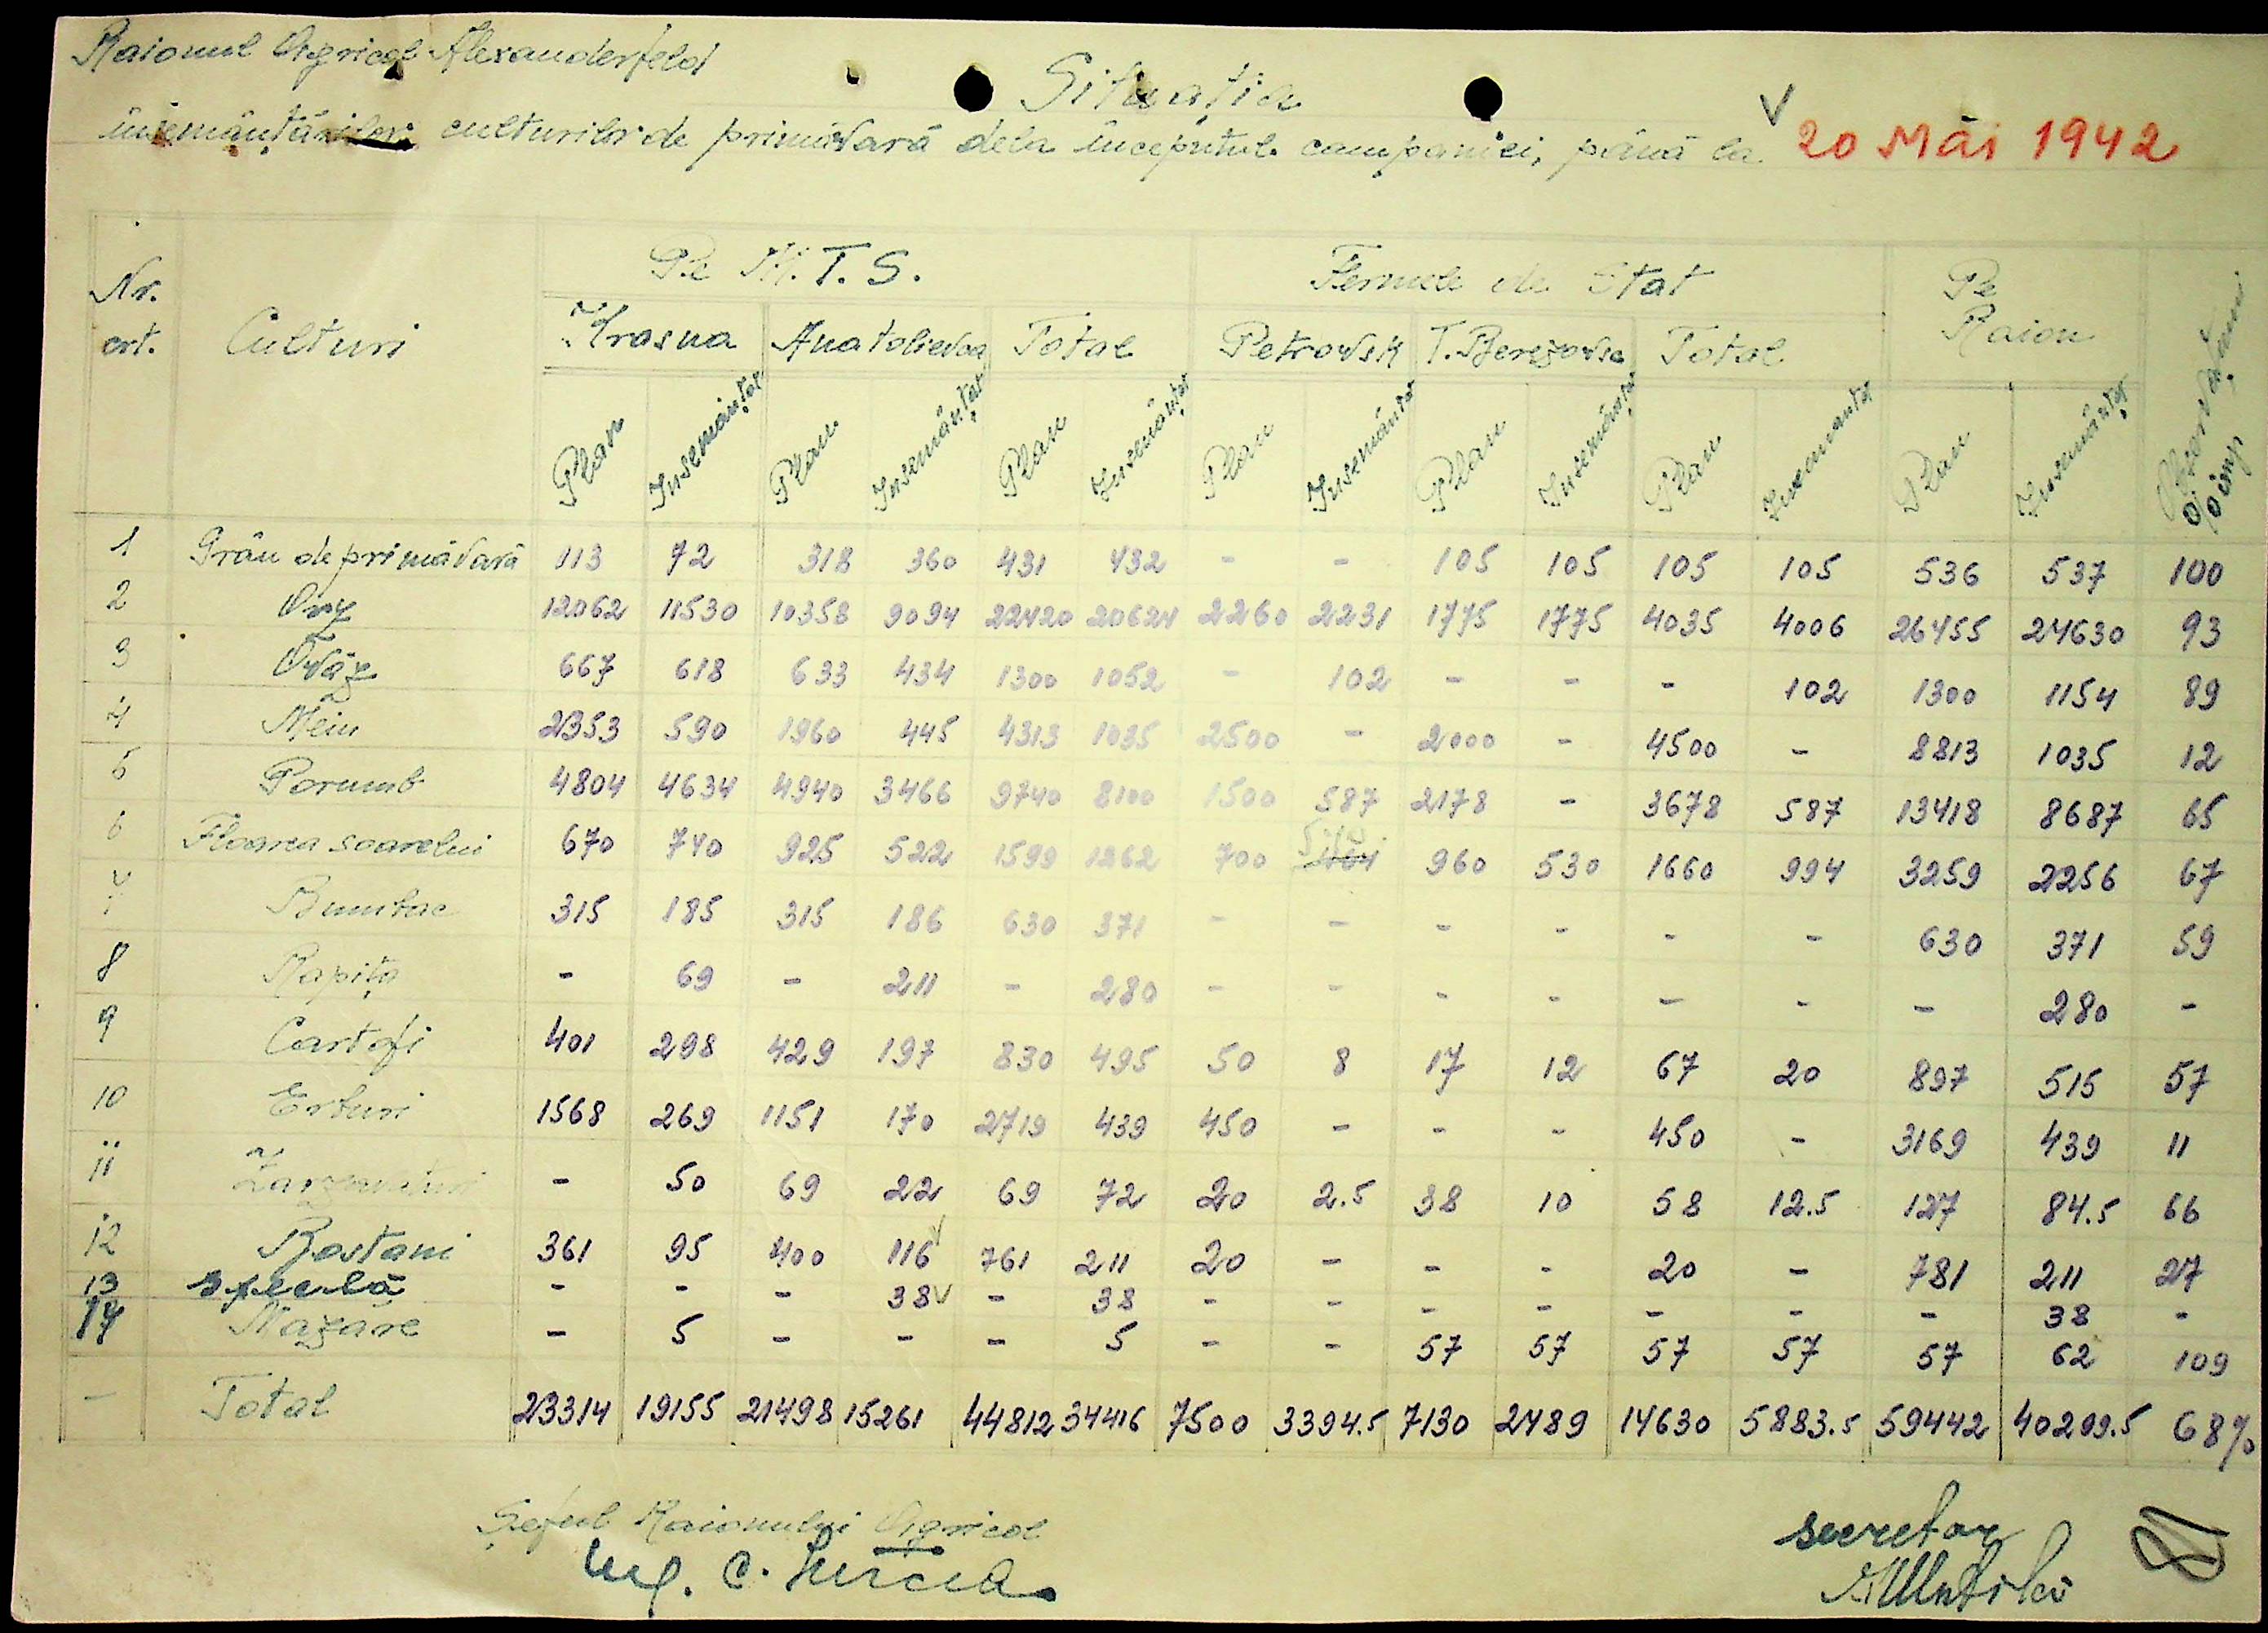 Raionul Agricol Alexanderfeld
Situația
însemânțărilor culturilor de primăvară dela începutul campaniei, până la 20 Mai 1942
Nr. crt. Culturi Pe M.T.S. Fermele de Stat Pe Raion Observațiuni % imp
Krasna Anatolievca Total Petrovsk T.Berezovca Total
Plan Insemânțat Plan Insemânțat Plan Insemânțat Plan Insemânțat Plan Insemânțat Plan Insemanțat Plan Insemânțat
1 Grâu de primăvară 113 72 318 360 431 432 - - 105 105 105 105 536 537 100
2 Orz 12062 11530 10358 9094 22420 20624 2260 2231 1775 1775 4035 4006 26455 24630 93
3 Ovăz 667 618 633 434 1300 1052 - 102 - - - 102 1300 1154 89
4 Mein 2353 590 1960 445 4313 1035 2500 - 2000 - 4500 - 8813 1035 12
5 Porumb 4804 4634 4940 3466 9740 8100 1500 587 2178 - 3678 587 13418 8687 65
6 Floarea soarelui 670 740 925 522 1599 1262 700 464 960 530 1660 994 3259 2256 67
7 Bumbac 315 185 315 186 630 371 - - - - - - 630 371 59
8 Rapița - 69 - 211 - 280 - - - - - - - 280 -
9 Cartofi 401 298 429 197 830 495 50 8 17 12 67 20 897 515 57
10 Erburi 1568 269 1151 170 2719 439 450 - - - 450 - 3169 439 11
11 Zarzavaturi - 50 69 22 69 72 20 2.5 38 10 58 12.5 127 84.5 66
12 Bostani 361 95 400 116 761 211 20 - - - 20 - 781 211 27
13 sfeclă - - - 38 - 38 - - - - - - - 38 -
14 Mazăre - 5 - - - 5 - - 57 57 57 57 57 62 109
- Total 23314 19155 21498 15261 44812 34416 7500 3394.5 7130 2489 14630 5883.5 59442 40299.5 68%
Șeful Raionului Agricol
Ing. C.
secretar